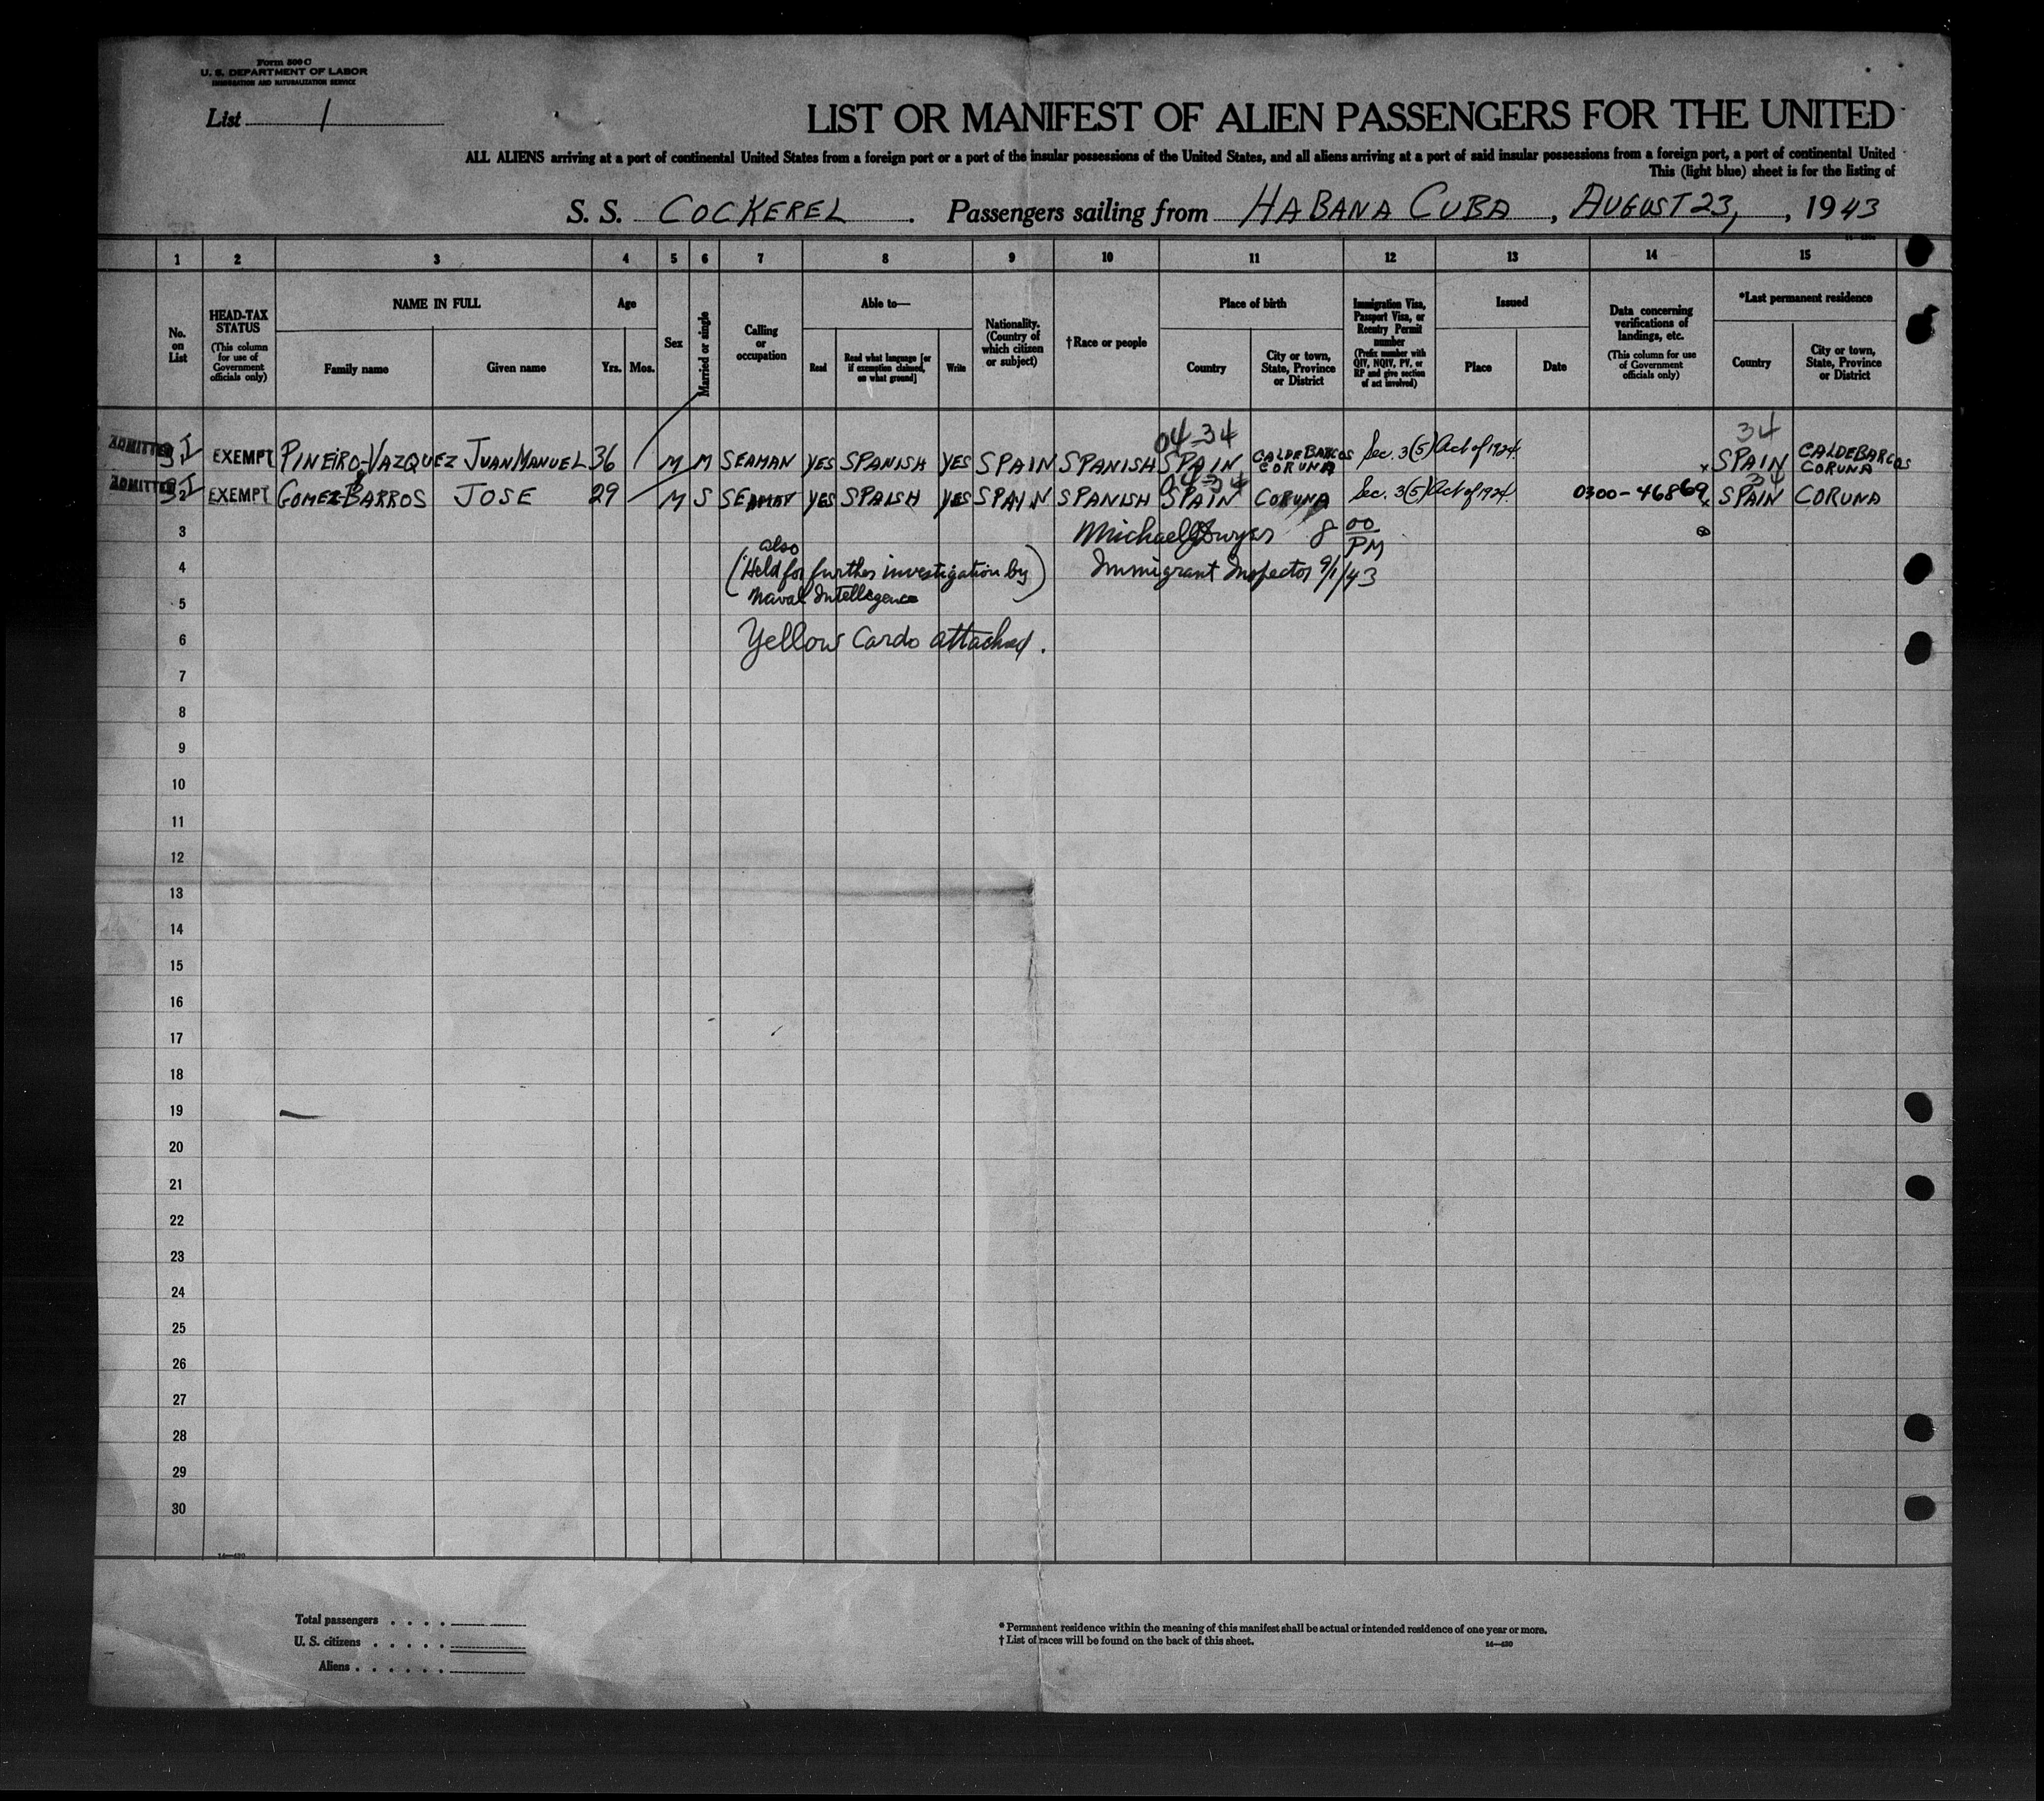 Form 500 C
U. S. DEPARTMENT OF LABOR
IMMIGRATION AND NATURALIZATION SERVICE
List 1
LIST OR MANIFEST OF ALIEN PASSENGERS FOR THE UNITED
ALL ALIENS arriving at a port of continental United States from a foreign port or a port of the insular possessions of the United States, and all aliens arriving at a port of said insular possessions from a foreign port, a port of continental United
This (light blue) sheet is for the listing of
S. S. COCKEREL . Passengers sailing from HABANA CUBA , AUGUST 23, , 1943
1 2 3 4 5 6 7 8 9 10 11 12 13 14 15
No. on List
HEAD-TAX STATUS (This column for use of Government officials only)
NAME IN FULL
Family name Given name
Age
Yrs. Mos.
Sex
Married or single
Calling or occupation
Able to—
Read Read what language [or if exemption claimed, on what ground] Write
Nationality. (Country of which citizen or subject)
†Race or people
Place of birth
Country City or town, State, Province or District
Immigration Visa, Passport Visa, or Reentry Permit number (Prefix number with QIV, NQIV, PV, or RP and give section of act involved)
Issued
Place Date
Data concerning verifications of landings, etc. (This column for use of Government officials only)
*Last permanent residence
Country City or town, State, Province or District
04-34 34
ADMITTED EXEMPT PINEIRO-VAZQUEZ JUAN MANUEL 36 M M SEAMAN YES SPANISH YES SPAIN SPANISH SPAIN CALDEBARCOS CORUNA Sec. 3(5) Act of 1924. x SPAIN CALDEBARCOS CORUNA
04-34 34
ADMITTED EXEMPT GOMEZ-BARROS JOSE 29 M S SEAMAN YES SPAISH YES SPAIN SPANISH SPAIN CORUNA Sec. 3(5) Act of 1924. 0300-46869 x SPAIN CORUNA
3 Michael Dwyer 8 00 PM
also
4 (Held for further investigation by) Immigrant Inspector 9/1/43
5 Naval Intelligence
6 Yellow Cards attached.
7
8
9
10
11
12
13
14
15
16
17
18
19
20
21
22
23
24
25
26
27
28
29
30
14—430
Total passengers
U. S. citizens
Aliens
* Permanent residence within the meaning of this manifest shall be actual or intended residence of one year or more.
† List of races will be found on the back of this sheet. 14—430